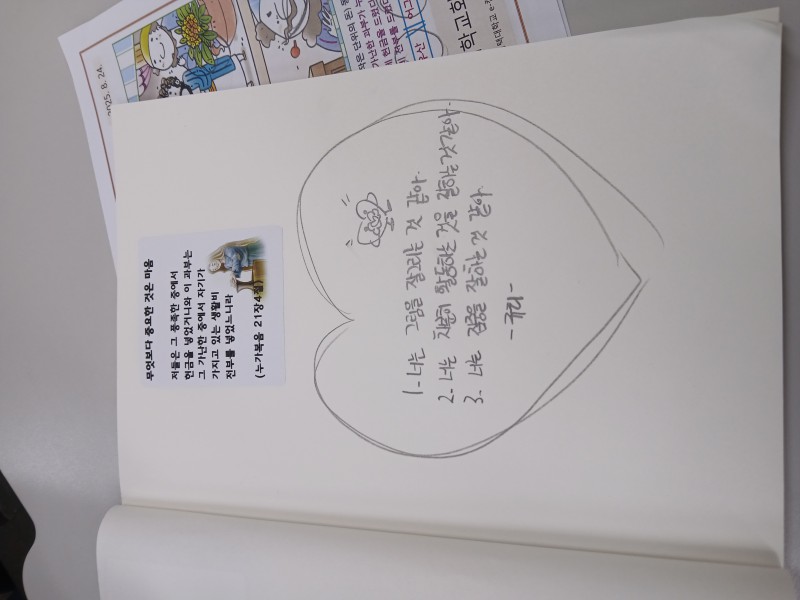 2025. 8. 24.
무엇보다 중요한 것은 마음
저들은 그 풍족한 중에서
헌금을 넣었거니와 이 과부는
그 가난한 중에서 자기가
가지고 있는 생활비
전부를 넣었느니라
(누가복음 21장4절)
1- 너는 그림을 잘그리는 것 같아.
2- 너는 활동하는 것을 잘하는 것같아.
3. 너는 집중을 잘하는 것 같아